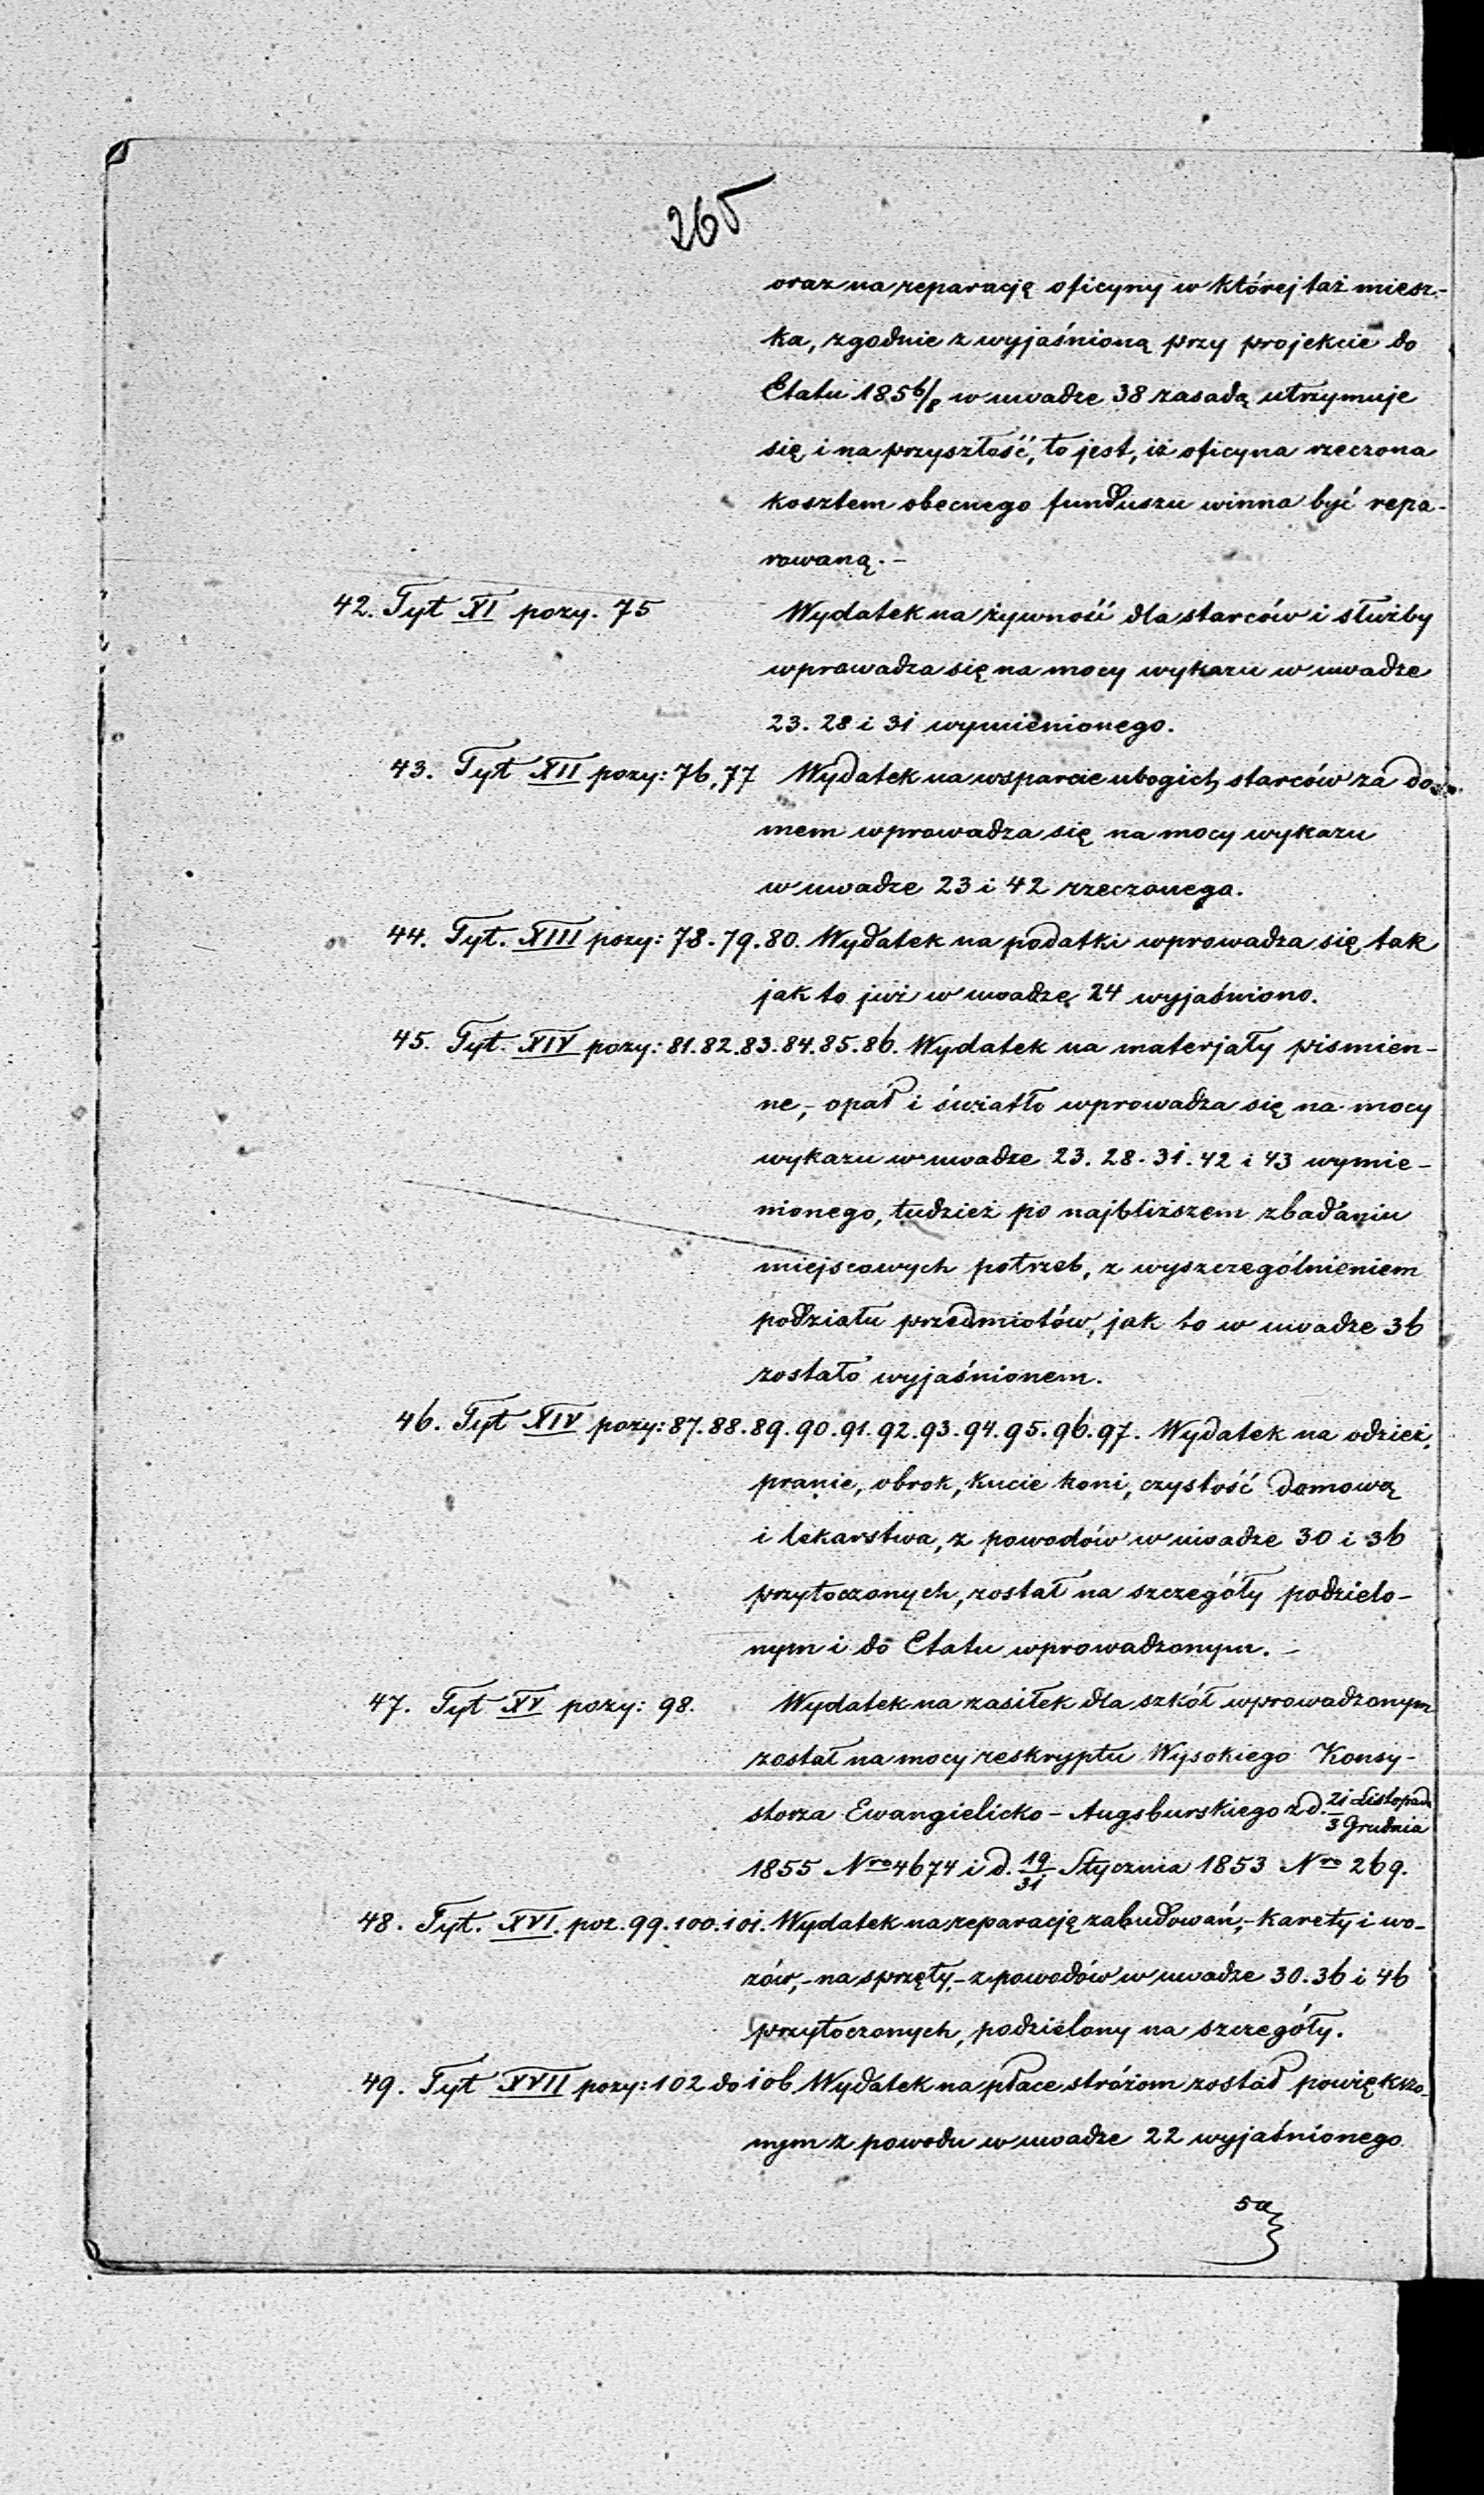 265
oraz na reparację oficyny w której taż miesz-
ka, zgodnie z wyjaśnioną przy projekcie do
Etatu 1856/8 w uwadze 38 zasadą utrzymuje
się i na przyszłość, to jest, iż oficyna rzeczona
kosztem obecnego funduszu winna być repa-
rowaną. -
42. Tyt XI pozy. 75 Wydatek na żywność dla starców i służby
wprowadza się na mocy wykazu w uwadze
23. 28 i 31 wymienionego.
43. Tyt XII pozy: 76, 77 Wydatek na wsparcie ubogich starców za do-
mem wprowadza się na mocy wykazu
w uwadze 23 i 42 rzeczonego.
44. Tyt. XIII pozy: 78. 79. 80. Wydatek na podatki wprowadza się tak
jak to już w uwadze 24 wyjaśniono.
45. Tyt. XIV pozy: 81. 82. 83. 84. 85. 86. Wydatek na materjały piśmien-
ne, - opał i światło wprowadza się na mocy
wykazu w uwadze 23. 28. 31. 42 i 43 wymie-
nionego, tudzież po najbliższem zbadaniu
miejscowych potrzeb, z wyszczególnieniem
podziału przedmiotów, jak to w uwadze 36
zostało wyjaśnionem.
46. Tyt XIV pozy: 87. 88. 89. 90. 91. 92. 93. 94. 95. 96. 97. Wydatek na odzież,
pranie, obrok, kucie koni, czystość domową
i lekarstwa, z powodów w uwadze 30 i 36
przytoczonych, został na szczegóły podzielo-
nym i do Etatu wprowadzonym. -
47. Tyt XV pozy: 98. Wydatek na zasiłek dla szkół wprowadzonym
został na mocy reskryptu Wysokiego Konsy-
storza Ewangielicko-Augsburskiego z d. 21 Listopada/3 Grudnia
1855 Nro 4674 i d. 19/31 Stycznia 1853 Nro 269.
48. Tyt. XVI. poz. 99. 100. 101. Wydatek na reparację zabudowań, - karety i wo-
zów, - na sprzęty, - z powodów w uwadze 30. 36 i 46
przytoczonych, podzielony na szczegóły.
49. Tyt XVII pozy: 102 do 106 Wydatek na płace stróżom został powiększo-
nym z powodu w uwadze 22 wyjaśnionego
5a